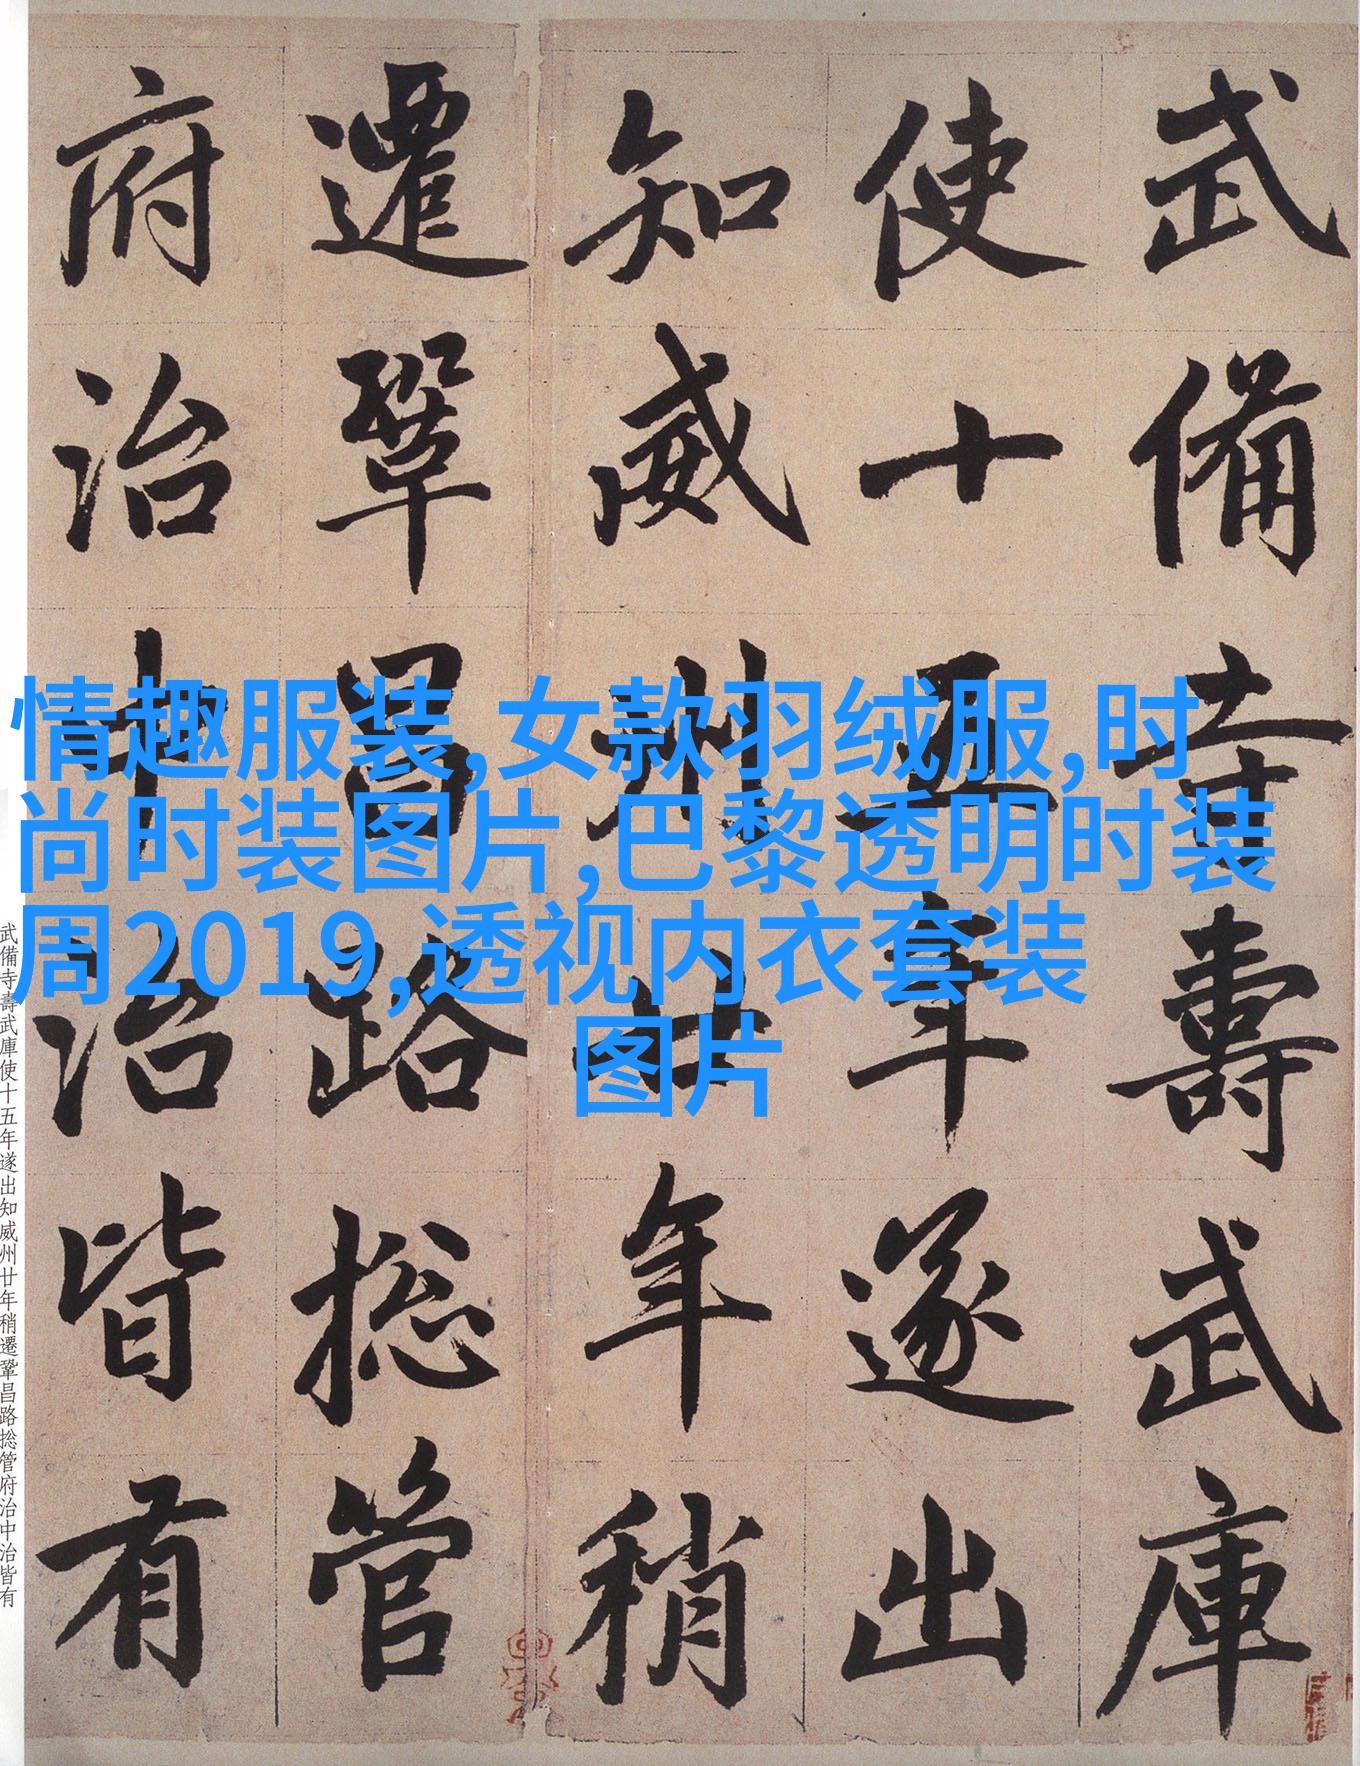 武備寺壽武庫
使十五年遂出
知威州廿年稍
遷鞏昌路捴管
府治中治皆有
情趣服装,女款羽绒服,时
尚时装图片,巴黎透明时装
周2019,透视内衣套装
图片
武備寺壽武庫使十五年遂出知威州廿年稍遷鞏昌路捴管府治中治皆有